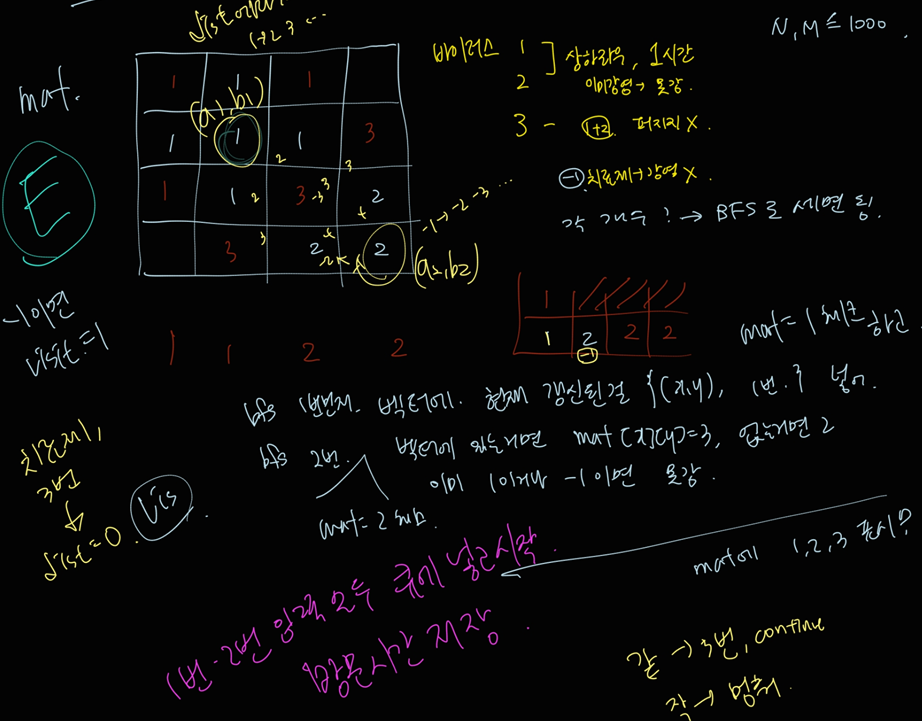 1→2 3 ...
N, M ≤ 1000
mat.
바이러스 1
2
상하좌우, 1시간
이미감염→ 불감.
3 - 1+2. 퍼지지 X.
-1 치료제→감염 X
각 개수? → BFS로 세면 됨.
E
1 1 1
(a1,b1)
1 1 1 3
1 1 3 2
3 2 2
-1→-2→-3 ...
(a2,b2)
-1이면
visit=1
1 1 2 2
1
1 2 2 2
-1
mat=1 체크하고
bfs 1번먼저. 벡터에. 현재 갱신된걸 {(x,y), 1번.} 넣어.
bfs 2번. 벡터에 있는거면 mat[x][y]=3, 없는거면 2
이미 1이거나 -1이면 불감.
mat=2 체크.
치료제,
3번
dist=0.
vis
mat에 1,2,3 표시?
1번-2번 양쪽모두 큐에 넣고시작.
방문시간 저장.
같→3번, continue
작→멈춰.